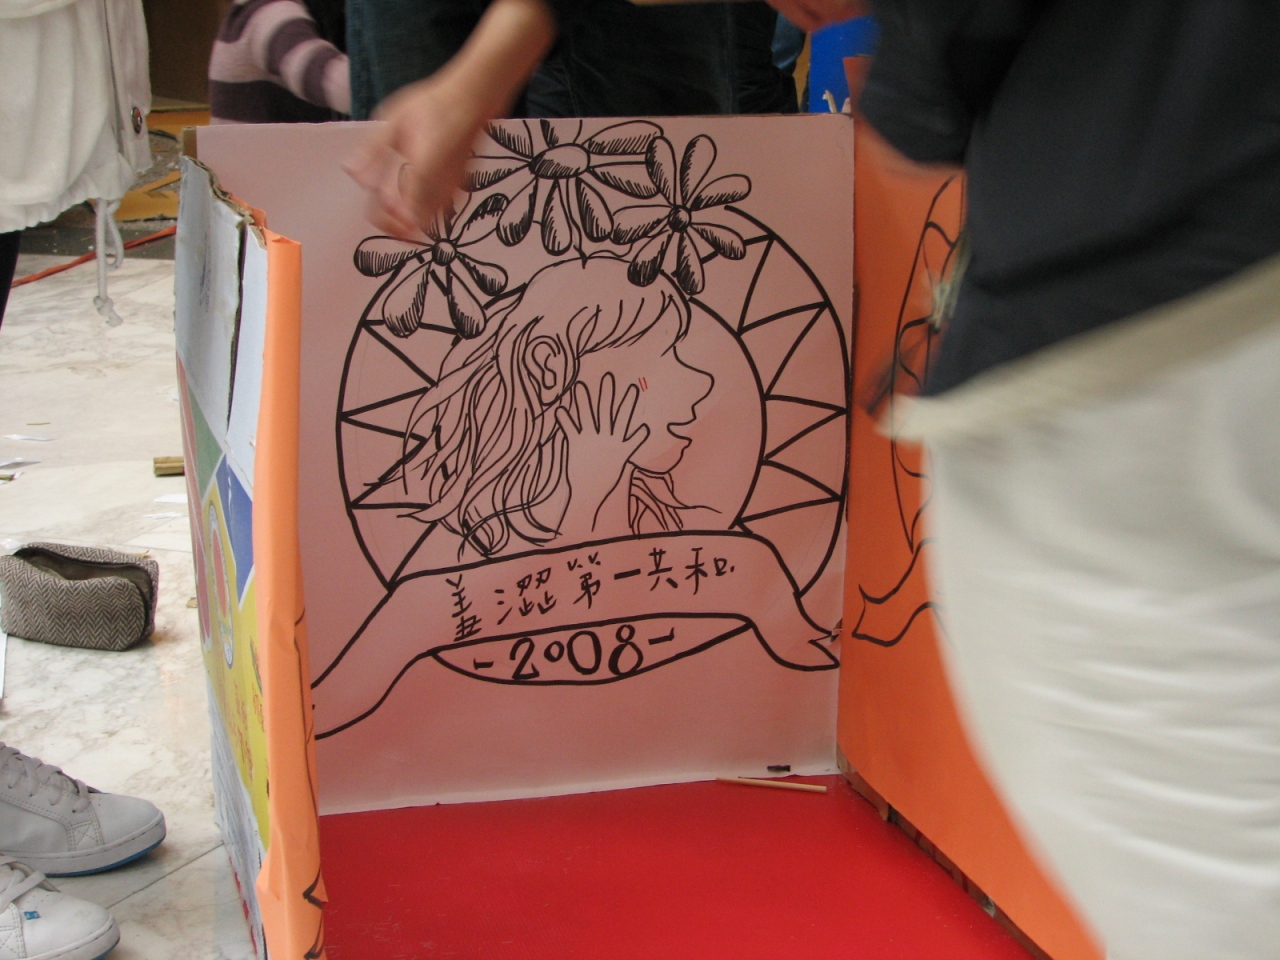 羞澀第一共和.
-2008-